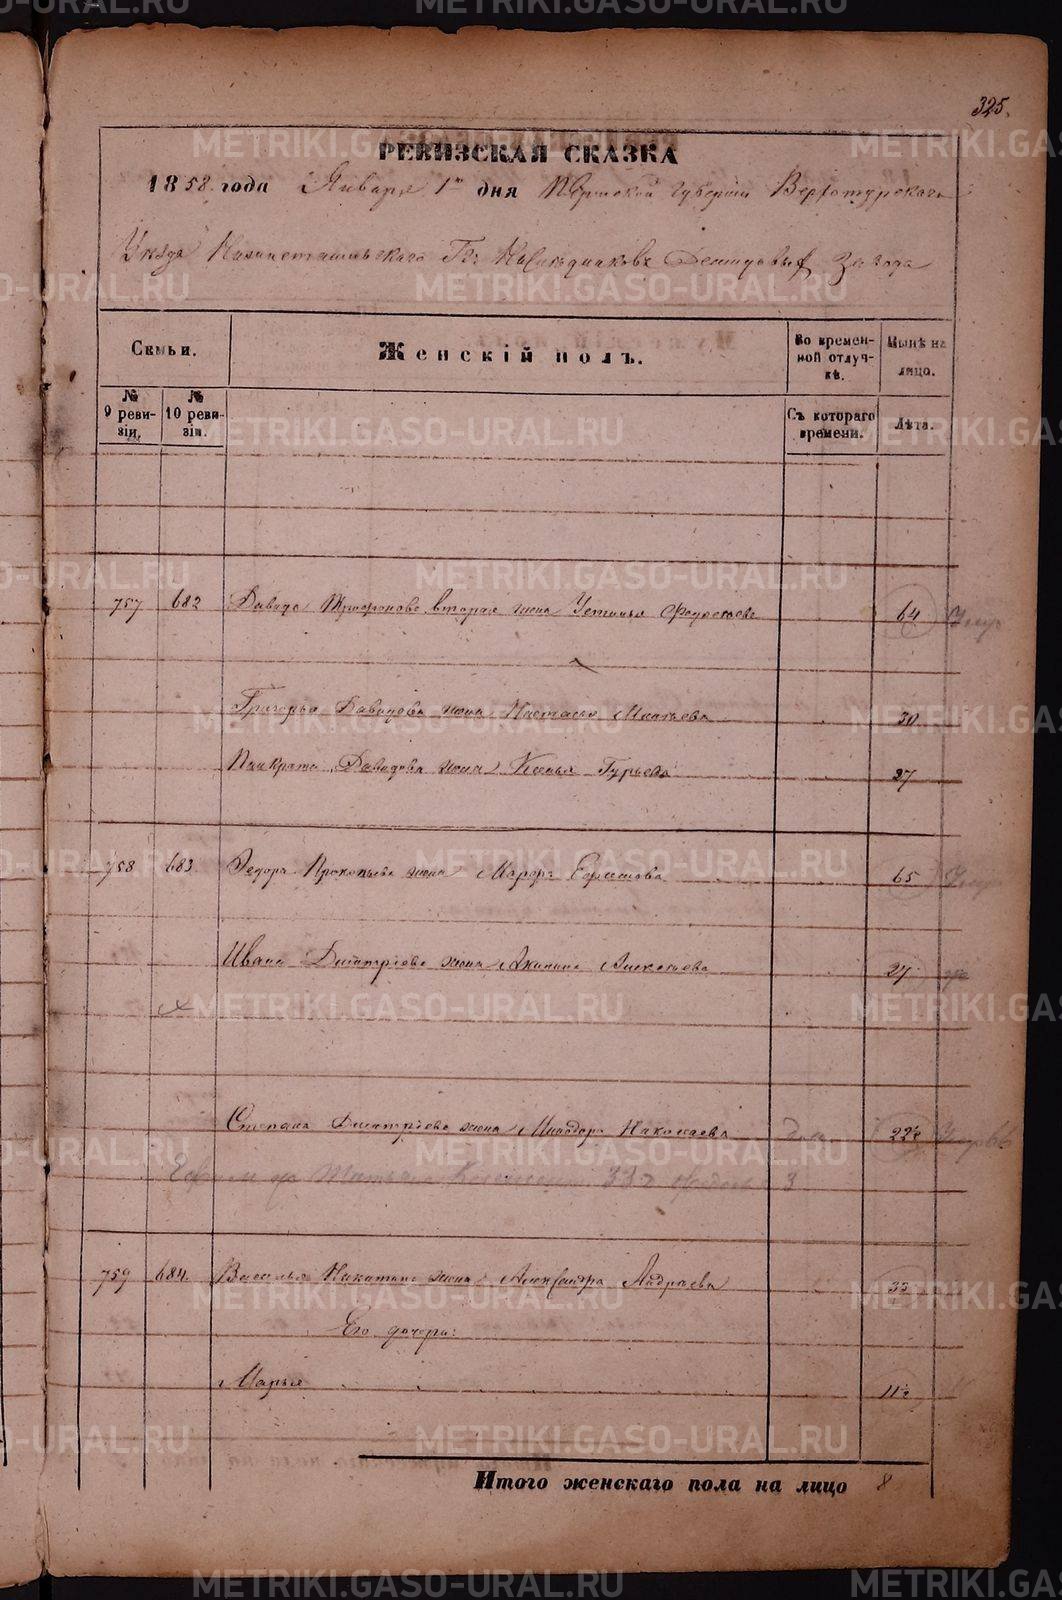 325.
РЕВИЗСКАЯ СКАЗКА
1858 года Января 1го дня Пермской Губернии Верхотурскаго
Уезда Нижнетагильскаго Гг. Наследниковъ Демидовыхъ Завода
Семьи. Женскій полъ. Во временной отлучкѣ. Нынѣ на лицо.
№ 9 ревизіи. № 10 ревизіи. Съ котораго времени. Лѣта.
757 682 Давида Трофимова вторая жена Устинья Федосеева 64
Григорья Давидова жена Настасья 30
Панкрата Давидова жена Ксенья Гурьева 27
758 683 Федора Прокопьева жена Марфа Ефимова 65
Ивана Дмитріева жена Акилина Алексеева 27
Степана Дмитріева жена Минодора Николаева 22½
Татьяна 33
759 684. Василья Никитина жена Александра Андреева 33
Его дочери:
Марья 11½
Итого женскаго пола на лицо 8
METRIKI.GASO-URAL.RU